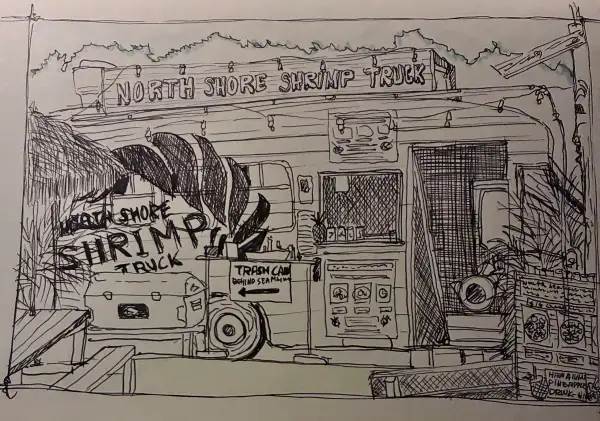 NORTH SHORE SHRIMP TRUCK
NORTH SHORE
SHRIMP
TRUCK
TRASH CAN
BEHIND
HAWAIIAN
PINEAPPLE
DRINK